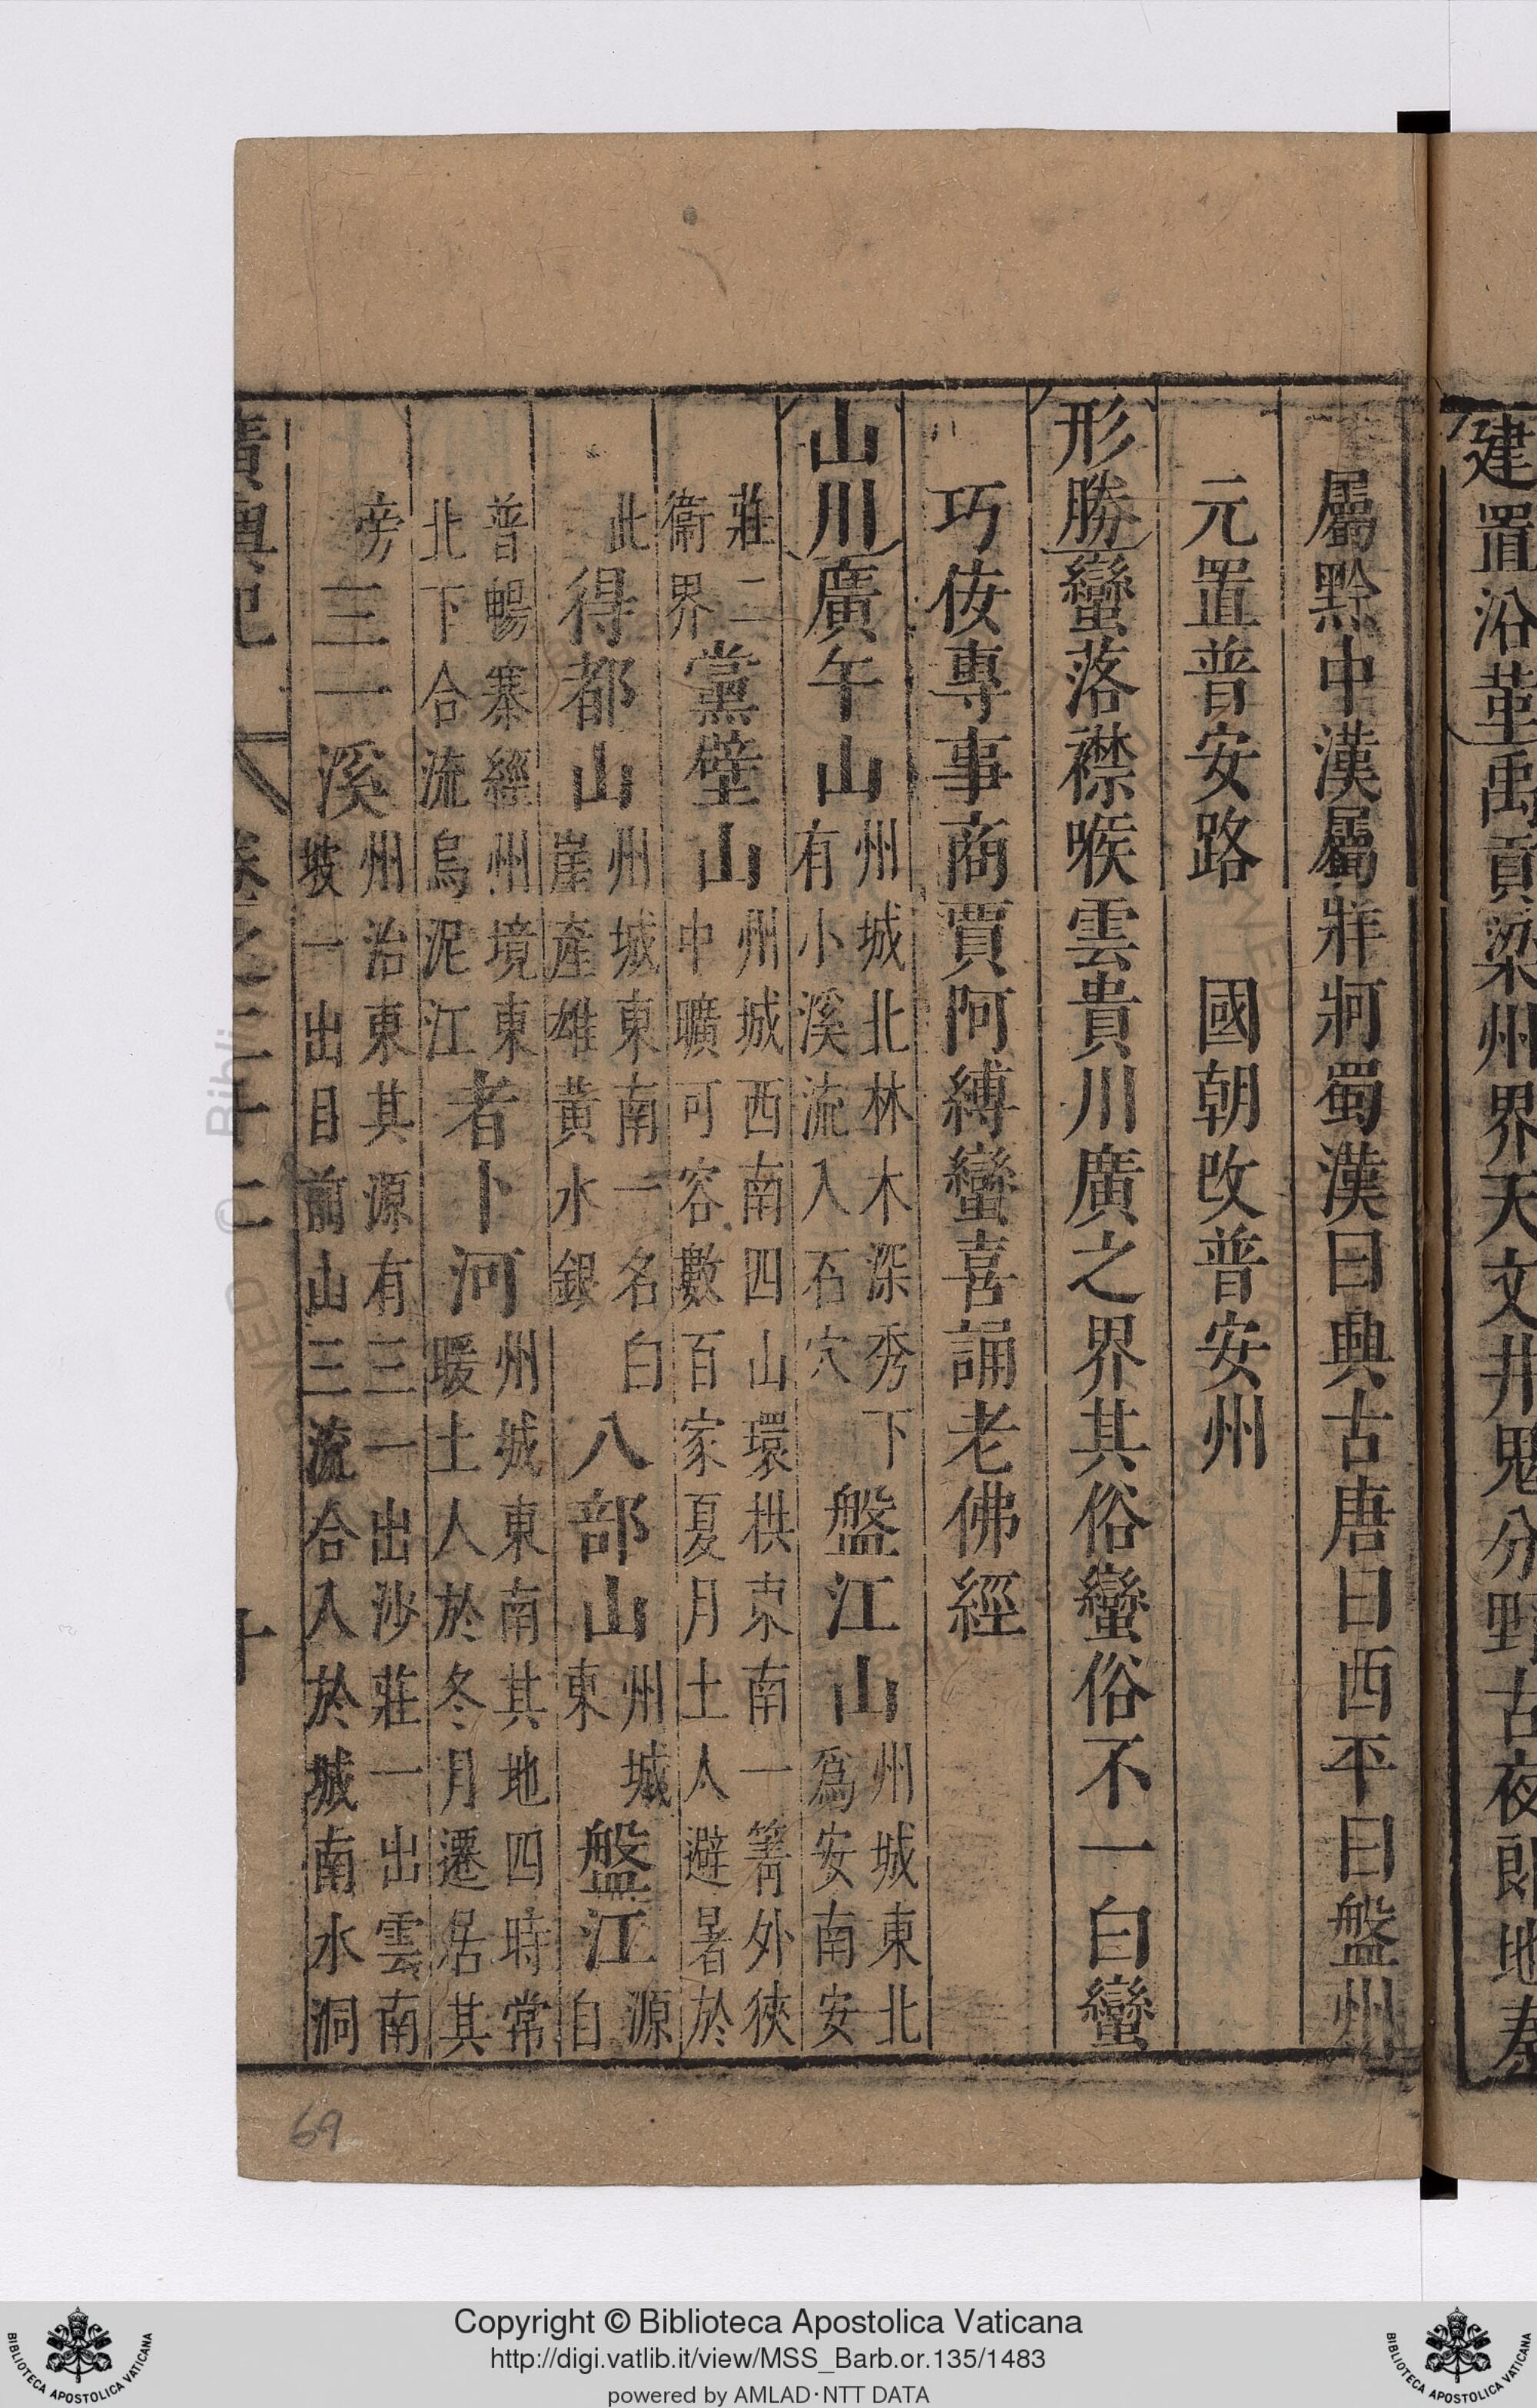 建置沿革禹貢梁州界天文井鬼分野古夜郎地秦
屬黔中漢屬牂牁蜀漢曰興古唐曰西平曰盤州
元置普安路　國朝改普安州
形勝蠻落襟喉雲貴川廣之界其俗蠻俗不一白蠻
巧佞專事商賈阿縛蠻喜誦老佛經
山川廣午山州城北林木深秀下有小溪流入石穴盤江山州城東北爲安南安
莊二衛界黨壁山州城西南四山環拱東南一箐外狹中曠可容數百家夏月土人避暑於
此得都山州城東南一名白崖產雄黃水銀八部山州城東盤江源自
普暢寨經州境東北下合流烏泥江者卜河州城東南其地四時常暖土人於冬月遷居其
旁三一溪州治東其源有三一出沙莊一出雲南坡一出目前山三流合入於城南水洞
廣輿記　卷之二十二　十
69
Copyright © Biblioteca Apostolica Vaticana
http://digi.vatlib.it/view/MSS_Barb.or.135/1483
powered by AMLAD·NTT DATA
BIBLIOTECA APOSTOLICA VATICANA
BIBLIOTECA APOSTOLICA VATICANA